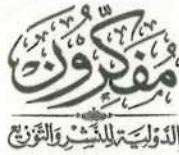 مُفَكِّرُونَ
الدَّوْلِيَّة لِلنَّشْرِ وَالتَّوْزِيْع